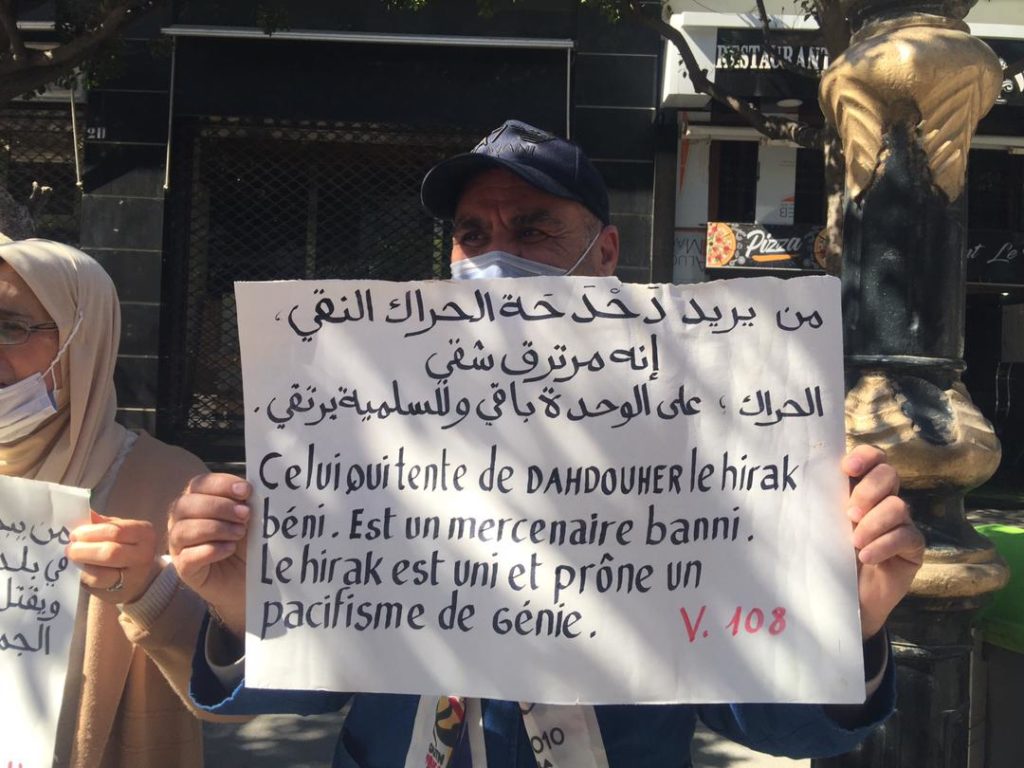 RESTAURANT
Pizza
من يريد دَحْدَحَة الحراك النقي،
إنه مرتزق شقي
الحراك؛ على الوحدة باقي وللسلمية يرتقي.
Celui qui tente de DAHDOUHER le hirak
béni. Est un mercenaire banni.
Le hirak est uni et prône un
pacifisme de Génie.
V. 108
في بلد
ويقتل